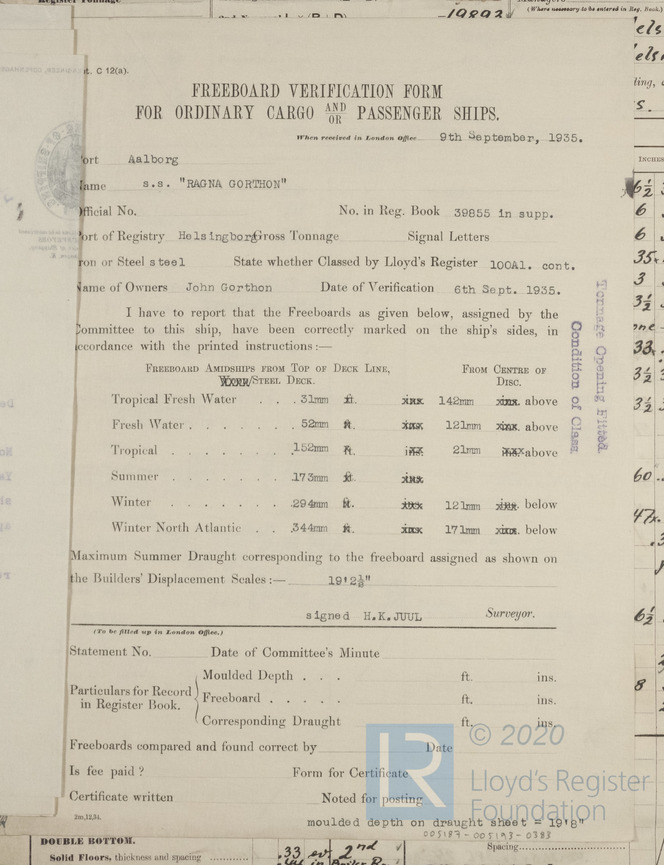 Register Tonnage
19892
(Where necessary to be entered in Reg. Book.)
t. C 12(a).
FREEBOARD VERIFICATION FORM
FOR ORDINARY CARGO AND/OR PASSENGER SHIPS.
When received in London Office 9th September, 1935.
ort Aalborg
ame s.s. "RAGNA GORTHON"
fficial No. No. in Reg. Book 39855 in supp.
ort of Registry Helsingborg Gross Tonnage Signal Letters
ron or Steel steel State whether Classed by Lloyd's Register 100A1. cont.
ame of Owners John Gorthon Date of Verification 6th Sept. 1935.
I have to report that the Freeboards as given below, assigned by the
Committee to this ship, have been correctly marked on the ship's sides, in
ccordance with the printed instructions:—
FREEBOARD AMIDSHIPS FROM TOP OF DECK LINE, FROM CENTRE OF
/STEEL DECK. DISC.
Tropical Fresh Water . . . 31mm ft. ins. 142mm ins. above
Fresh Water . . . . . 52mm ft. ins. 121mm ins. above
Tropical . . . . . . 152mm ft. ins. 21mm ins. above
Summer . . . . . . 173mm ft. ins.
Winter . . . . . . 294mm ft. ins. 121mm ins. below
Winter North Atlantic . . 344mm ft. ins. 171mm ins. below
Tonnage Opening Fitted
Condition of Class
Maximum Summer Draught corresponding to the freeboard assigned as shown on
the Builders' Displacement Scales:— 19'2½"
signed H.K.JUUL Surveyor.
(To be filled up in London Office.)
Statement No. Date of Committee's Minute
Particulars for Record in Register Book.
Moulded Depth . . . ft. ins.
Freeboard . . . . . ft. ins.
Corresponding Draught ft. ins.
Freeboards compared and found correct by Date
Is fee paid? Form for Certificate
Certificate written Noted for posting
2m,12,34.
moulded depth on draught sheet = 19'8"
005187-005193-0383
© 2020
LR
Lloyd's Register
Foundation
DOUBLE BOTTOM.
Solid Floors, thickness and spacing
.33 2nd
Spacing
INCHES
6½
6
6
35
3
3½
33
3½
3½
60
47
6½
8